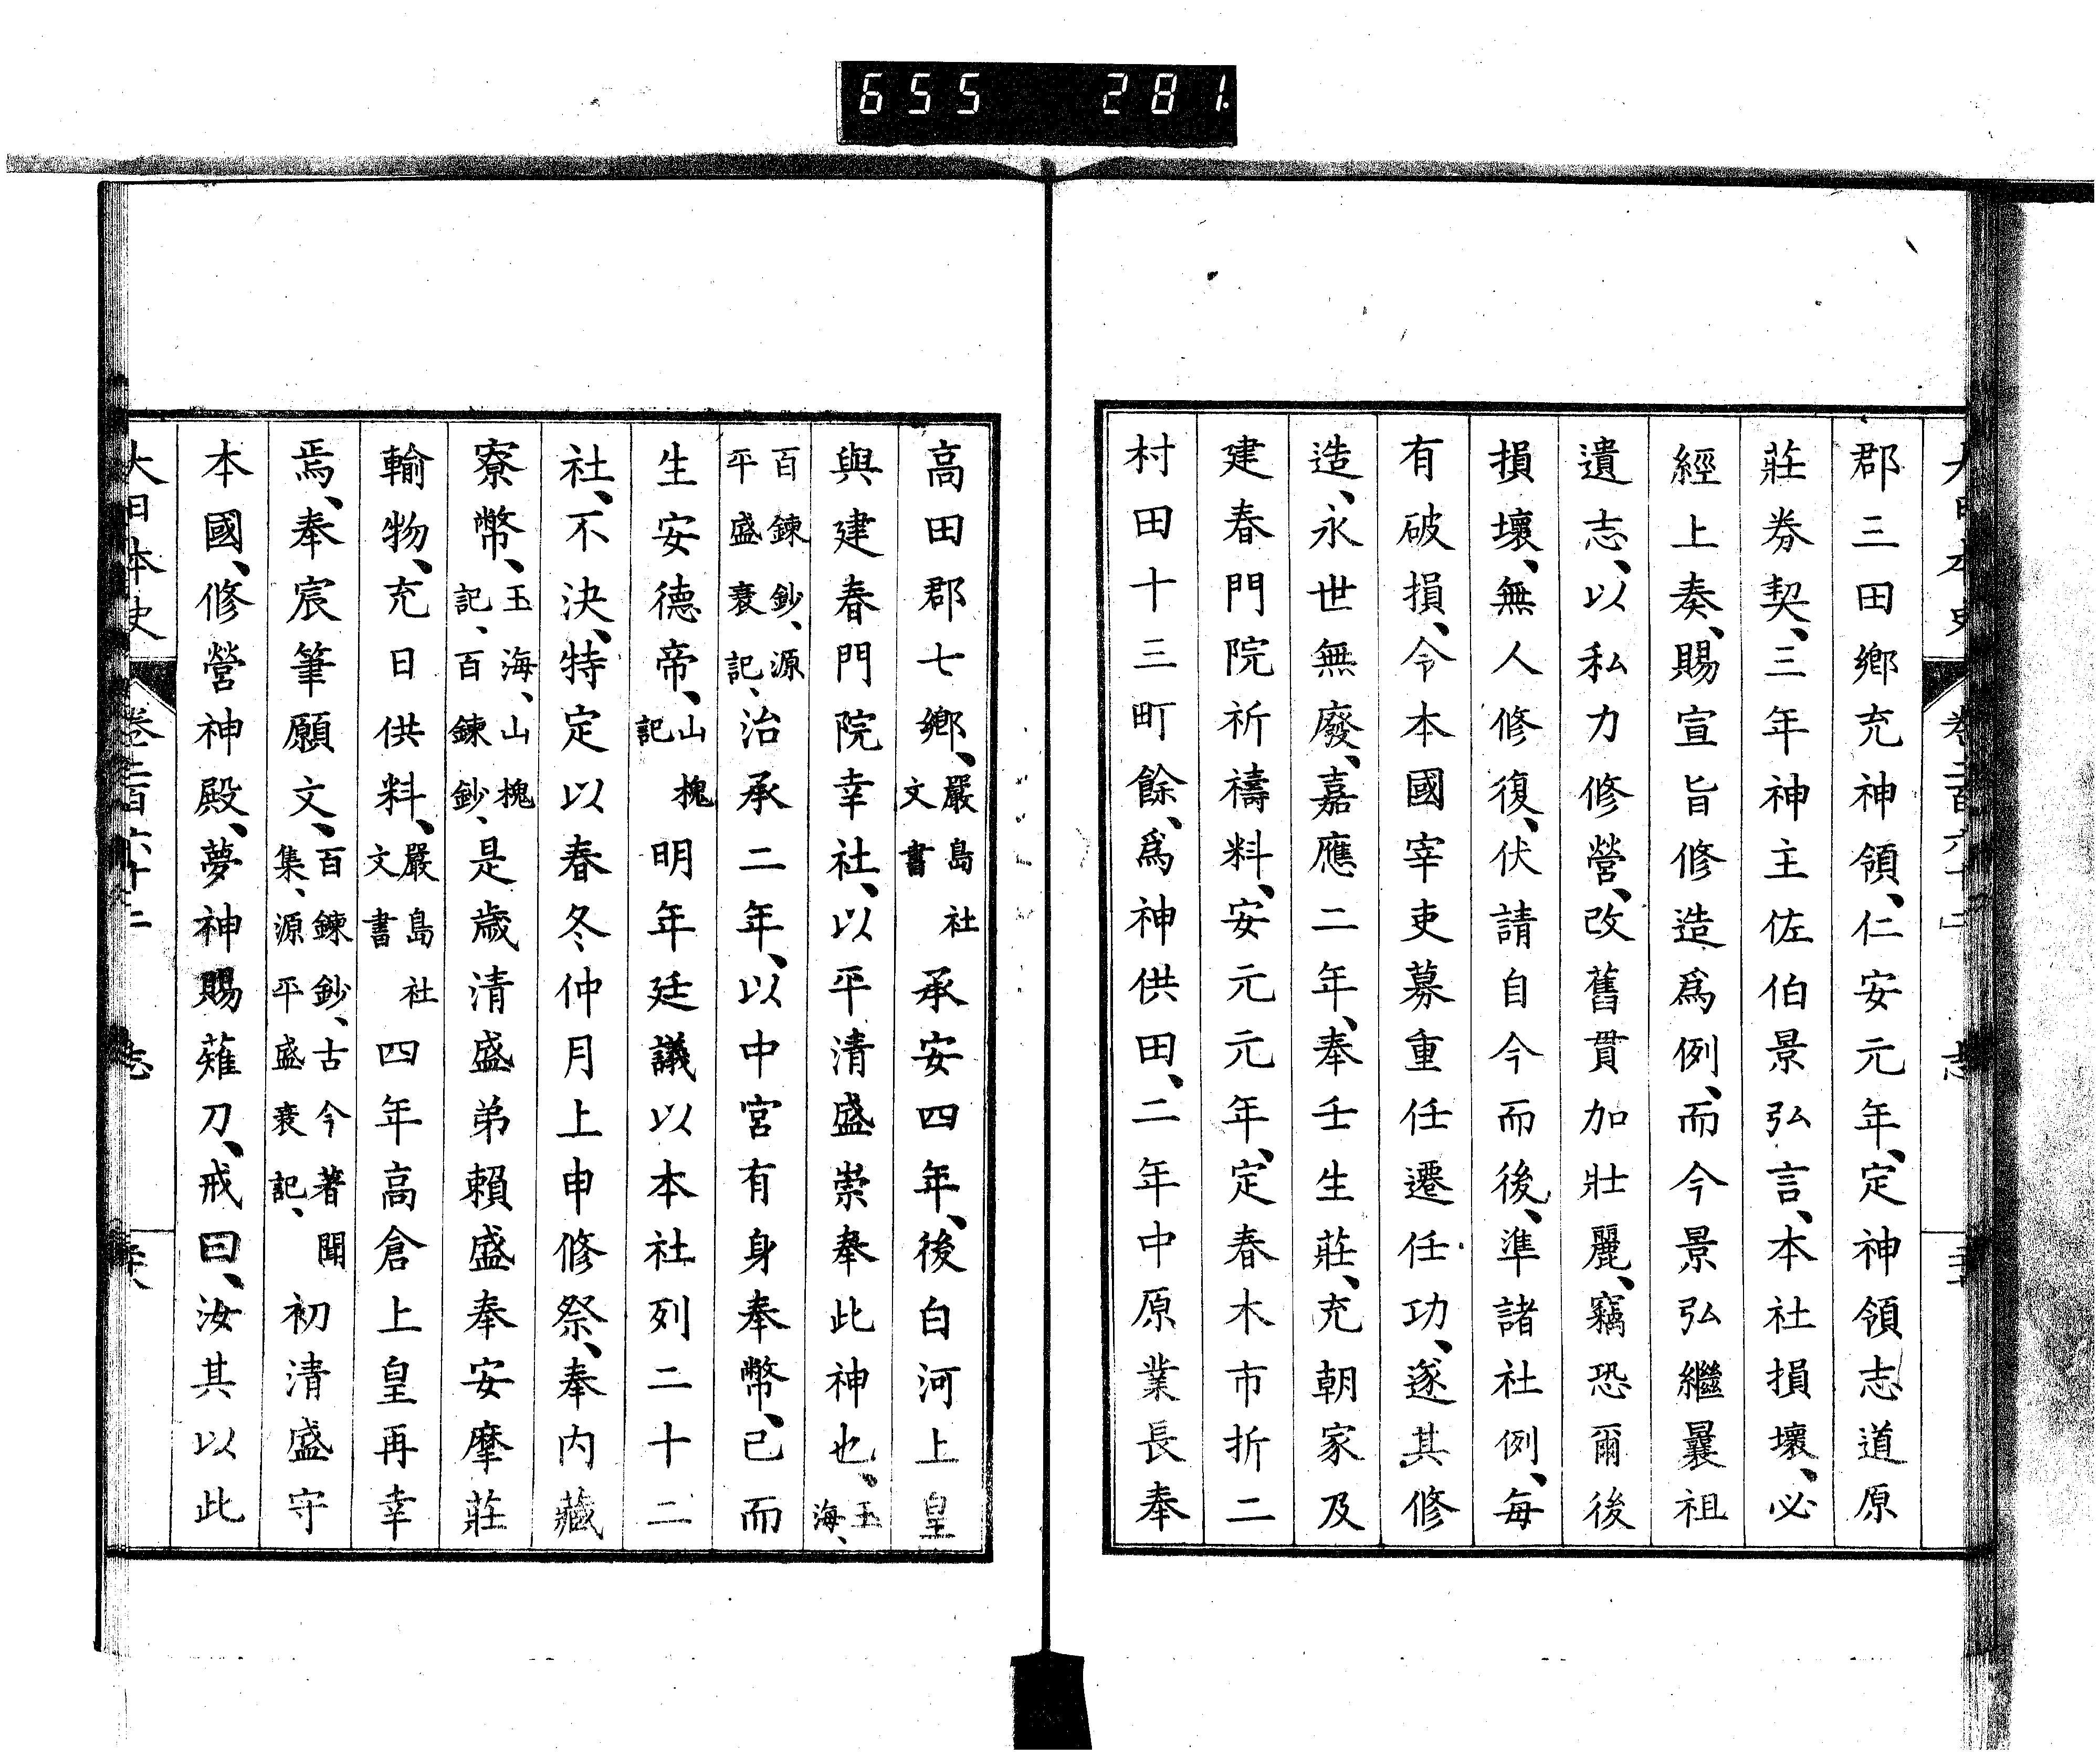 655 281.
郡三田鄉充神領、仁安元年、定神領志道原
莊券契、三年神主佐伯景弘言、本社損壞、必
經上奏、賜宣旨修造爲例、而今景弘繼曩祖
遺志、以私力修營、改舊貫加壯麗、竊恐爾後
損壞、無人修復、伏請自今而後、準諸社例、每
有破損、令本國宰吏募重任遷任功、遂其修
造、永世無廢、嘉應二年、奉壬生莊、充朝家及
建春門院祈禱料、安元元年、定春木市折二
村田十三町餘、爲神供田、二年中原業長奉
高田郡七鄉、嚴島社文書承安四年、後白河上皇
與建春門院幸社、以平清盛崇奉此神也、玉海、
百鍊鈔、源平盛衰記、治承二年、以中宮有身奉幣、已而
生安德帝、山槐記明年廷議以本社列二十二
社、不決、特定以春冬仲月上申修祭、奉內藏
寮幣、玉海、山槐記、百鍊鈔、是歲清盛弟賴盛奉安摩莊
輸物、充日供料、嚴島社文書四年高倉上皇再幸
焉、奉宸筆願文、百鍊鈔、古今著聞集、源平盛衰記、初清盛守
本國、修營神殿、夢神賜薙刀、戒曰、汝其以此
大日本史 卷二百六十二 志